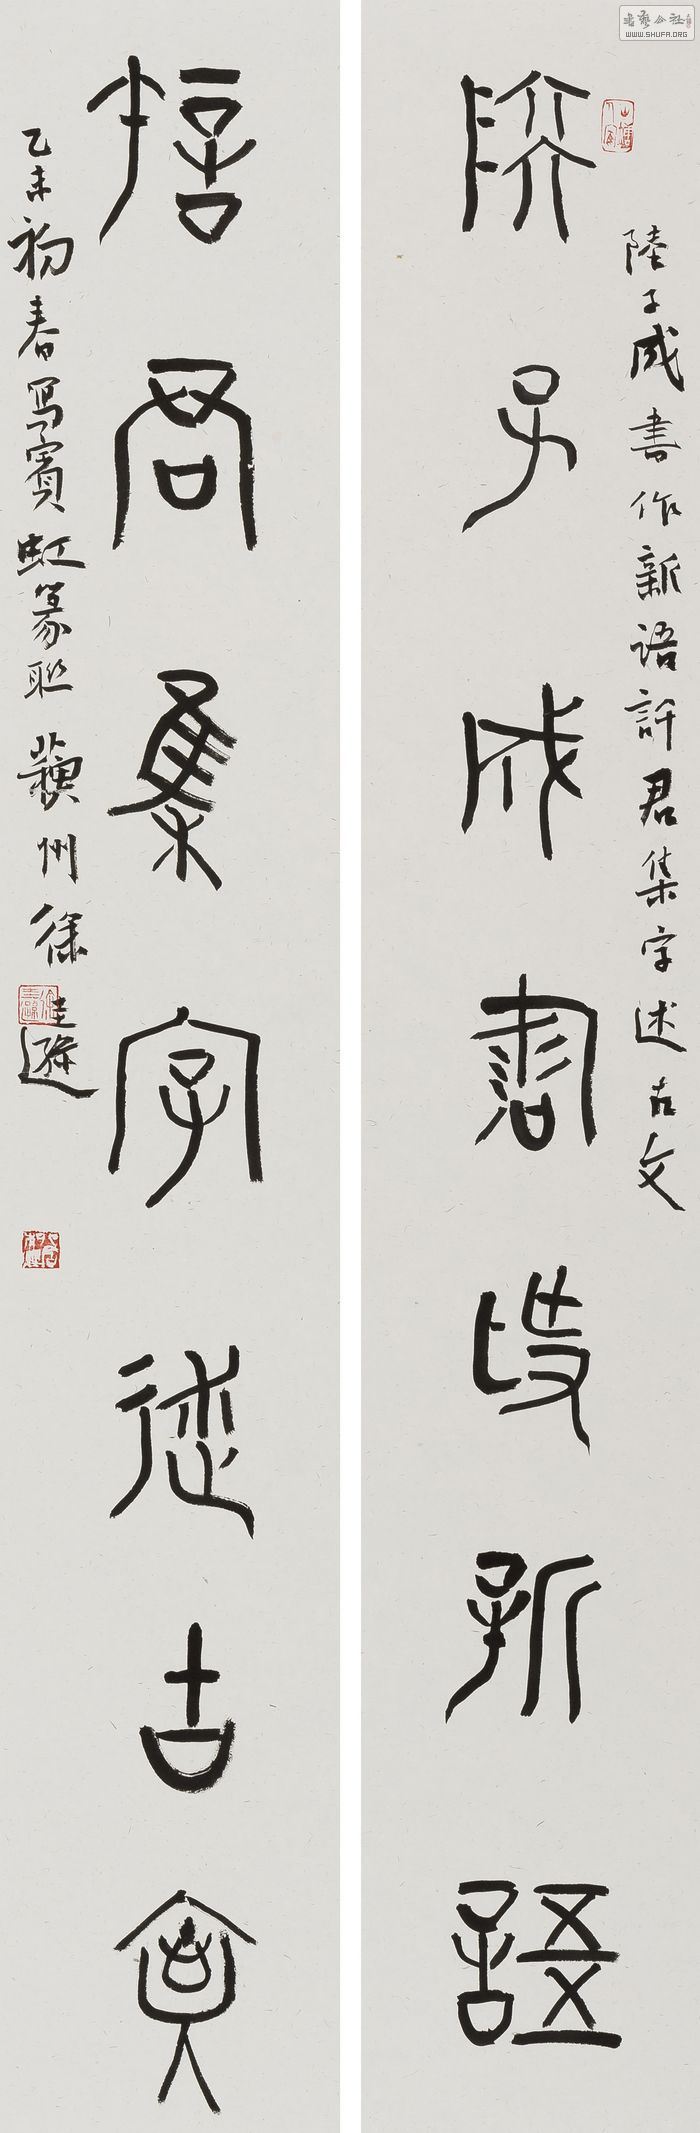 陸子成書作新語
許君集字述古文
陸子成書作新語許君集字述古文
乙未初春寫賓虹篆聯 蘄州徐圭逊
書藝公社
WWW.SHUFA.ORG